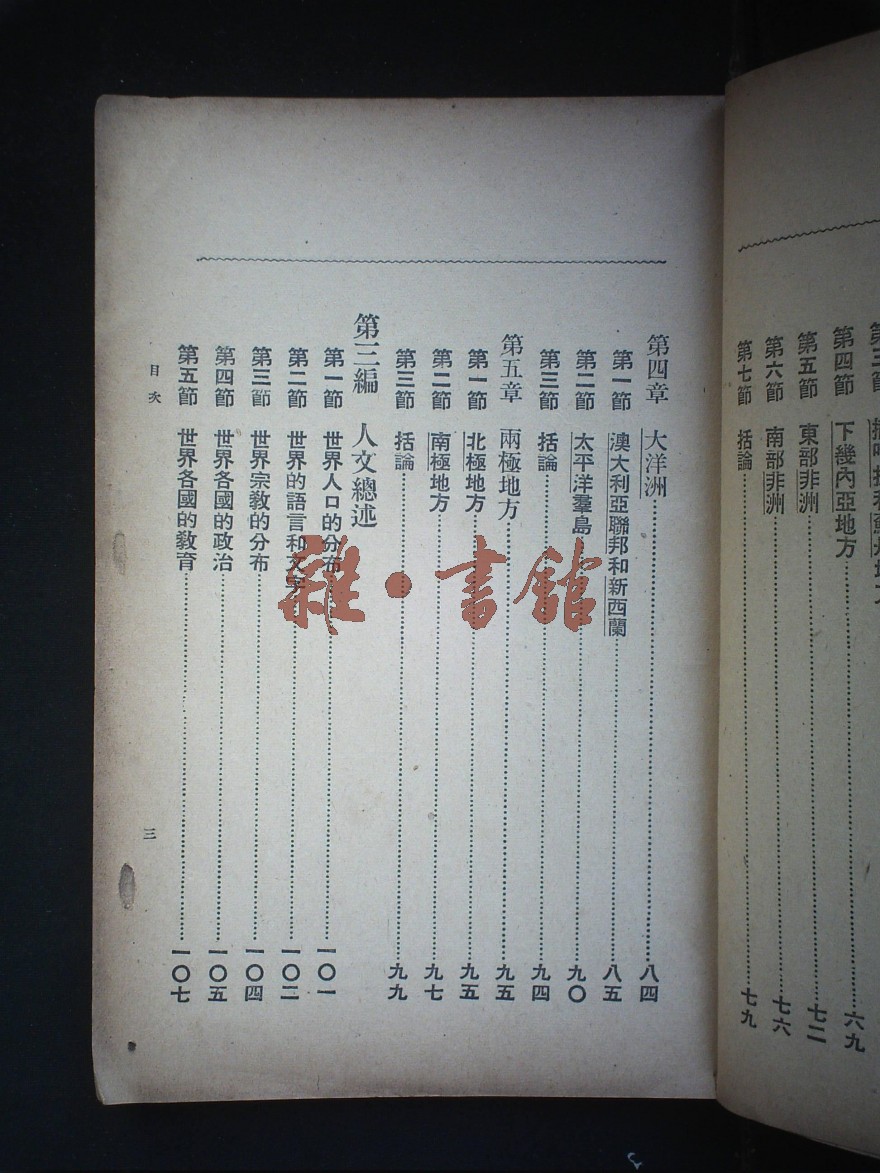 第四節 下幾內亞地方 六九
第五節 東部非洲 七二
第六節 南部非洲 七六
第七節 括論 七九
第四章 大洋洲 八四
第一節 澳大利亞聯邦和新西蘭 八五
第二節 太平洋羣島 九〇
第三節 括論 九四
第五章 兩極地方 九五
第一節 北極地方 九五
第二節 南極地方 九七
第三節 括論 九九
第三編 人文總述
第一節 世界人口的分布 一〇一
第二節 世界的語言和文字 一〇二
第三節 世界宗教的分布 一〇四
第四節 世界各國的政治 一〇五
第五節 世界各國的教育 一〇七
目次 三
雜·書館